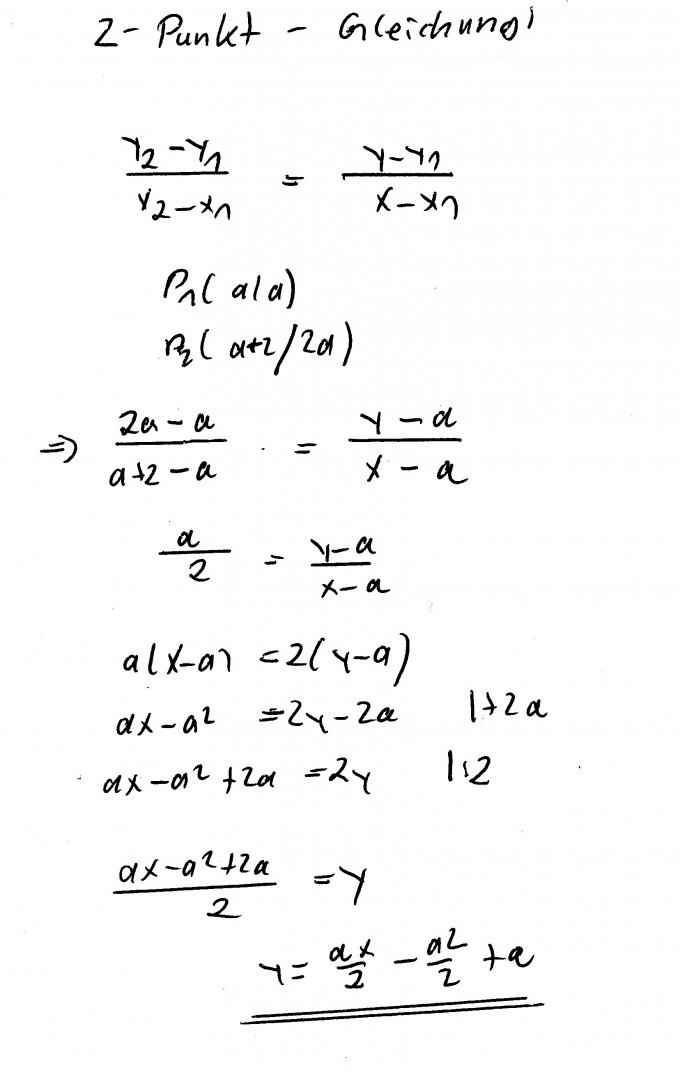 2 - Punkt - Gleichung
y2 - y1 / x2 - x1 = y - y1 / x - x1
P1( a | a )
P2( a+2 / 2a )
=> 2a - a / a+2 - a = y - a / x - a
a / 2 = y - a / x - a
a(x-a) = 2(y-a)
ax - a² = 2y - 2a |+2a
ax - a² + 2a = 2y |:2
ax - a² + 2a / 2 = y
y = ax/2 - a²/2 + a